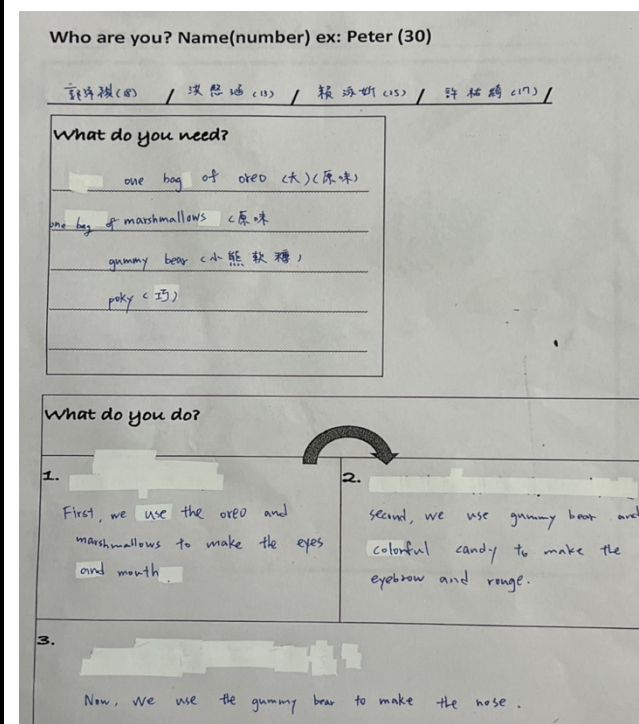 Who are you? Name(number) ex: Peter (30)
(18) / (13) / (25) / 許 (17) /
What do you need?
one bag of oreo (大)(原味)
one bag of marshmallows (原味
gummy bear (小熊軟糖)
poky (巧)
What do you do?
1.
First, we use the oreo and
marshmallows to make the eyes
and mouth.
2.
second, we use gummy bear and
colorful candy to make the
eyebrow and rouge.
3.
Now, we use the gummy bear to make the nose.